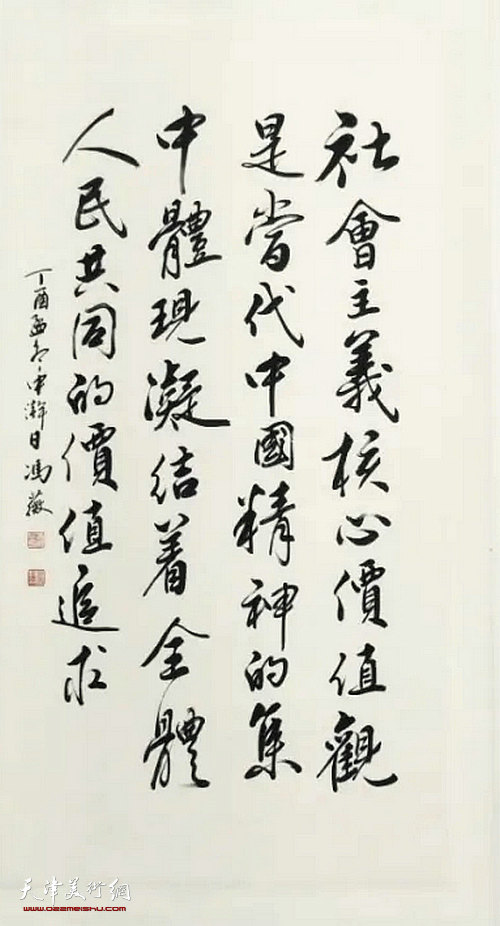 社會主義核心價值觀
是當代中國精神的集
中體現凝結着全體
人民共同的價值追求
丁酉孟冬中澣日馮薇
天津美術網
www.022meishu.com